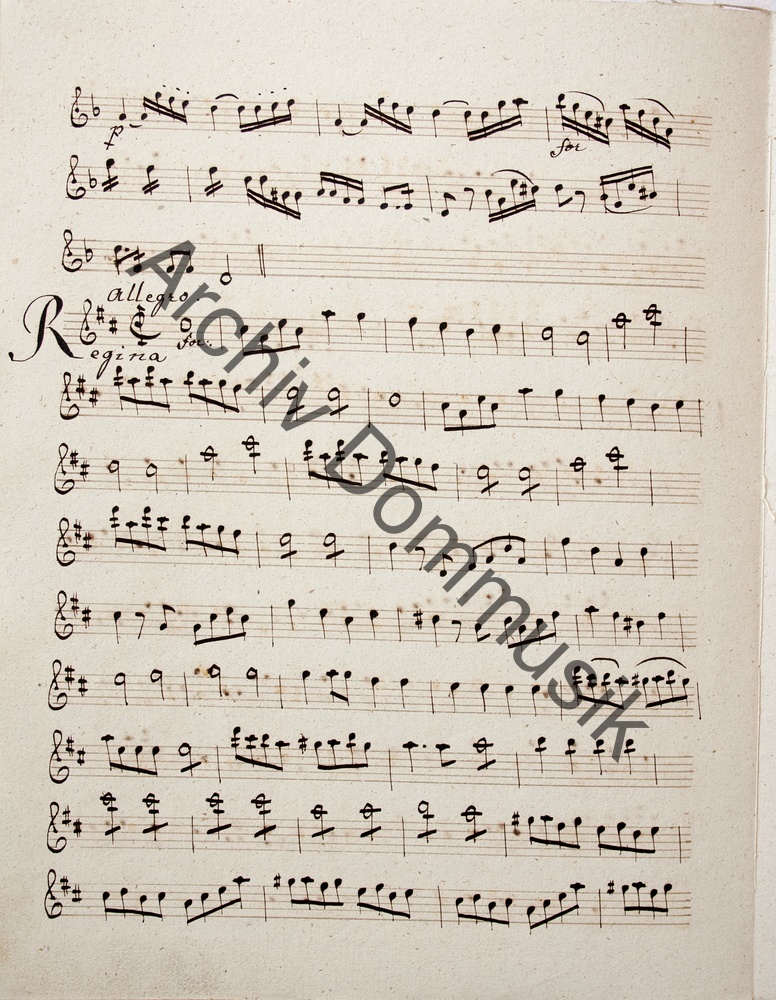 p
for
Allegro.
for:
Regina
Archiv Dommusik